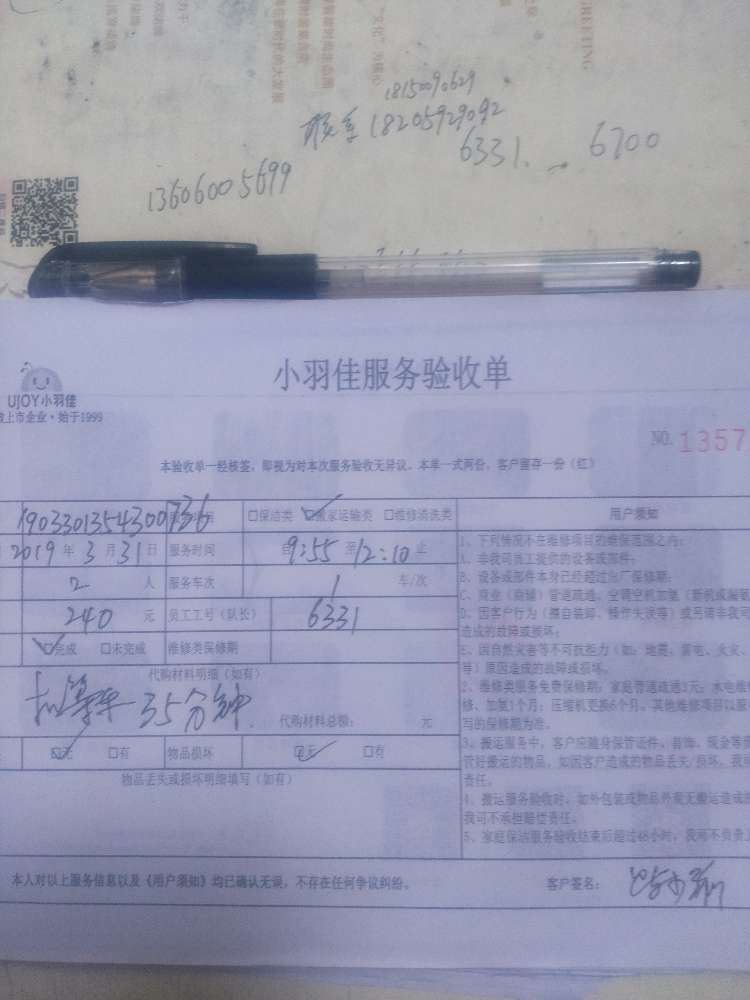 GREETING
18150090629
联系 18205929092
6331. 6700
13606005699
小羽佳服务验收单
UJOY小羽佳
上市企业·始于1999
NO. 1357
本验收单一经核签，即视为对本次服务验收无异议。本单一式两份，客户留存一份（红）
190330135430073b □保洁类 ☑搬家运输类 □维修清洗类 用户须知
2019 年 3 月 31 日 服务时间 自 9:55 至 12:10 止
2 人 服务车次 1 车/次
240 元 员工工号（队长） 6331
☑完成 □未完成 维修类保修期
代购材料明细（如有）
35分钟 代购材料总额： 元
☑无 □有 物品损坏 ☑无 □有
物品丢失或损坏明细填写（如有）
1、下列情况不在维修项目的维保范围之内：
A、非我司员工提供的设备或部件；
B、设备或部件本身已经超过出厂保修期；
C、商业（商铺）管道疏通、空调空机加氟（新机或漏氟
D、因客户行为（擅自装卸、操作失误等）或另请非我司
造成的故障或损坏；
E、因自然灾害等不可抗拒力（如：地震、雷电、火灾、
等）原因造成的故障或损坏。
2、维修类服务免费保修期：家庭管道疏通3天；水电维
修、加氟1个月；压缩机更换6个月。其他维修项目以服
写的保修期为准。
3、搬运服务中，客户应随身保管证件、首饰、现金等贵
管好搬运的物品，如因客户造成的物品丢失/损坏，我司
责任。
4、搬运服务验收时，如外包装或物品外观无搬运造成的
我司不承担赔偿责任。
5、家庭保洁服务验收结束后超过48小时，我司不负责
本人对以上服务信息以及《用户须知》均已确认无误，不存在任何争议纠纷。 客户签名：